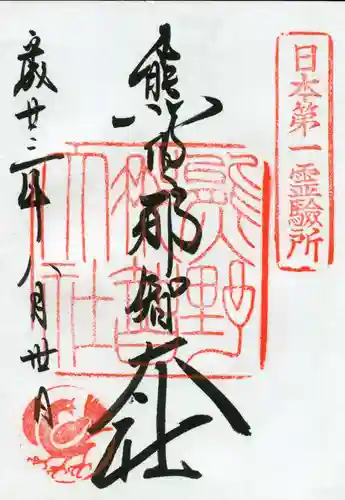 日本第一霊驗所
熊野那智大社
熊野
那智
大社
廿三年八月廿日